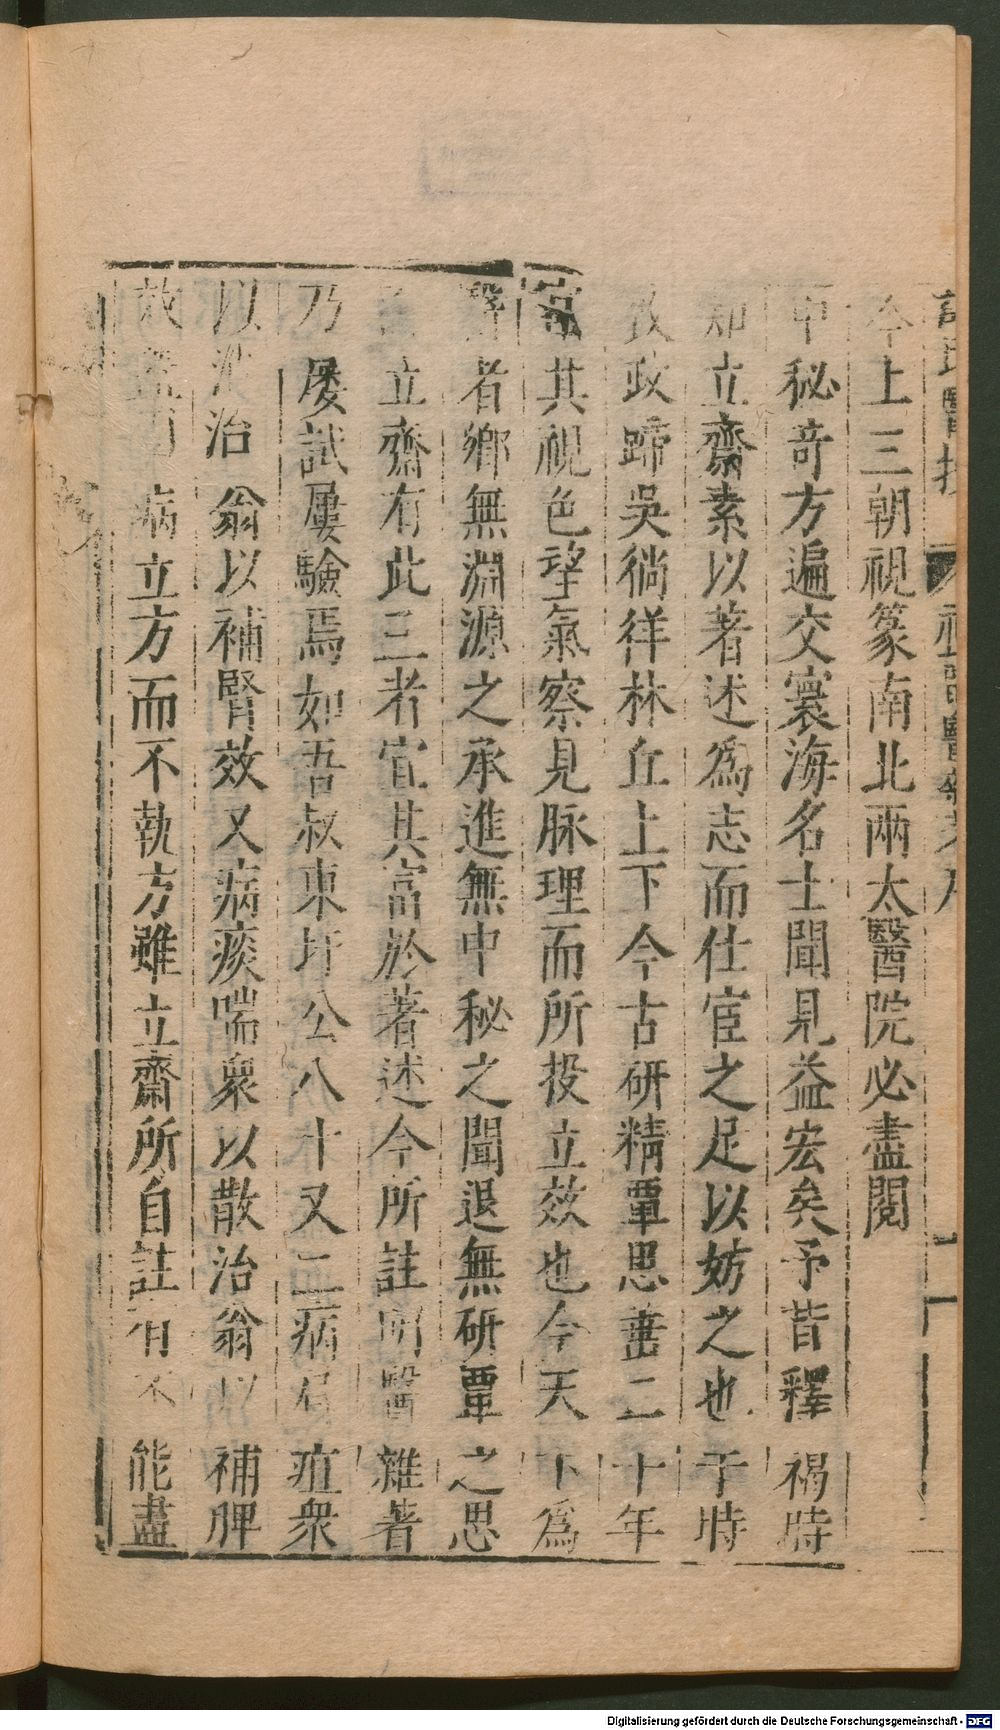 今上三朝視篆南北兩太醫院必盡閱
中秘奇方遍交寰海名士聞見益宏矣予昔釋褐時
知立齋素以著述爲志而仕宦之足以妨之也于時
政蹄吳徜徉林丘上下今古研精覃思垂二十年
其視色望氣察見脉理而所投立效也今天下爲
醫者鄉無淵源之承進無中秘之聞退無研覃之思
立齋有此三者宜其富於著述今所註明醫雜著
乃屡試屢驗焉如吾叔東圩公八十又二病疽衆
以治翁以補腎效又病痰喘衆以散治翁以補脾
病立方而不執方雖立齋所自註有不能盡
Digitalisierung gefördert durch die Deutsche Forschungsgemeinschaft - DFG